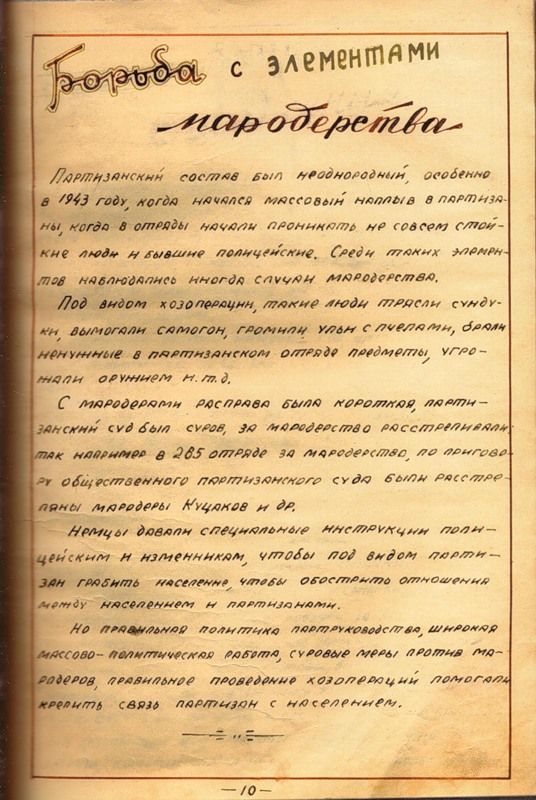 Борьба с элементами
мародерства
Партизанский состав был неоднородный, особенно
в 1943 году, когда начался массовый наплыв в партиза-
ны, когда в отряды начали проникать не совсем стой-
кие люди и бывшие полицейские. Среди таких элемен-
тов наблюдались иногда случаи мародерства.
Под видом хозоперации, такие люди трясли сунду-
ки, вымогали самогон, громили ульи с пчелами, брали
ненужные в партизанском отряде предметы, угро-
жали оружием и.т.д.
С мародерами расправа была короткая, парти-
занский суд был суров, за мародерство расстреливали,
так например в 285 отряде за мародерство, по пригово-
ру общественного партизанского суда были расстре-
ляны мародеры Куцаков и др.
Немцы давали специальные инструкции поли-
цейским и изменникам, чтобы под видом парти-
зан грабить население, чтобы обострить отношения
между населением и партизанами.
Но правильная политика партруководства, широкая
массово-политическая работа, суровые меры против ма-
родеров, правильное проведение хозопераций помогали
крепить связь партизан с населением.
— 10 —